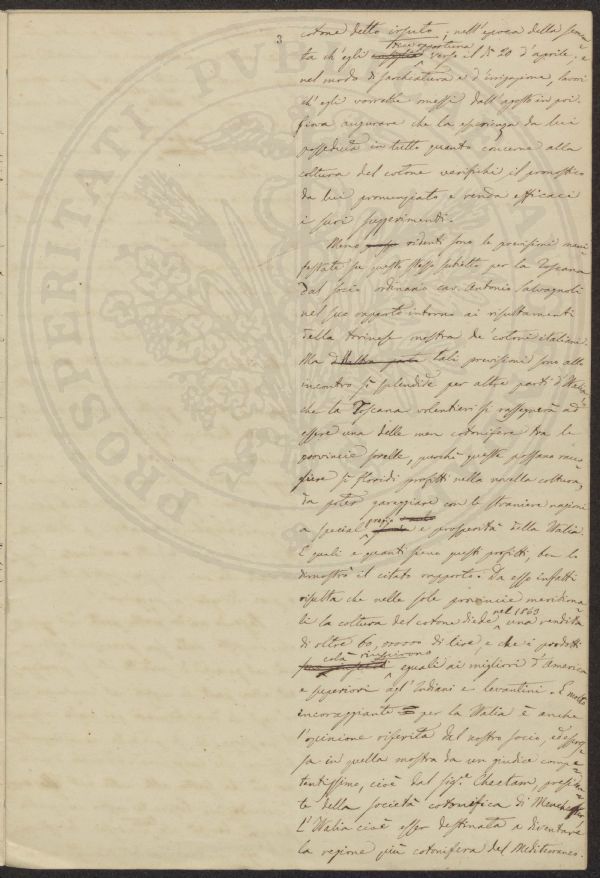 3
cotone detto irsuto, nell'epoca della semen
ta ch'egli troverebbe verso il dì 20 d'aprile, e
nel modo di sarchiatura e d'irrigazione, lavori
ch'egli vorrebbe messi dall'agosto in poi.
Giova augurare che la esperienza da lui
posseduta in tutto quanto concerne alla
coltura del cotone verifichi il pronostico
da lui pronunziato e renda efficaci
i suoi suggerimenti.
Meno ridenti sono le previsioni mani
festate su questo stesso subietto per la Toscana
dal socio ordinario cav. Antonio Salvagnoli
nel suo rapporto intorno ai risultamenti
della torinese mostra de' cotoni italiani.
Ma tali previsioni sono allo
incontro sì splendide per altre parti d'Italia
che la Toscana volentieri si rassegnerà ad
essere una delle men cotonifere tra le
provincie sorelle, purchè queste possano racco
gliere sì floridi profitti nella novella coltura,
da poter gareggiare con le straniere nazioni
a special pregio e prosperità della Italia.
E quali e quanti sieno questi profitti, ben lo
dimostra il citato rapporto. Da esso infatti
risulta che nelle sole provincie meridiona
li la coltura del cotone diede nel 1863 una rendita
di oltre 60,000000 di lire, e che i prodotti
colà riuscirono eguali ai migliori d'America
e superiori agl'Indiani e levantini. È molto
incoraggiante per la Italia è anche
l'opinione riferita dal nostro socio, ed espres
sa in quella mostra da un giudice compe
tentissimo, cioè dal sig.r Cheetam, presiden
te della società cotonifica di Manchester
L'Italia cioè esser destinata a diventare
la regione più cotonifera del Mediterraneo.
PROSPERITATI PVBLICAE